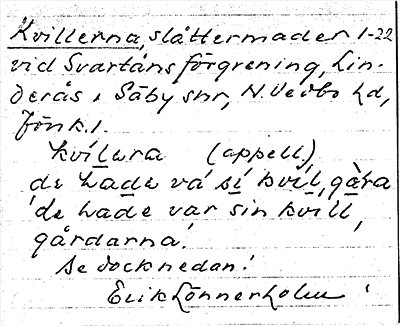 Kvillerna, slåttermader 1-22
vid Svartåns förgrening, Lin-
derås i Säby snr, N. Vedbo hd,
Jönk. l.
kvílera (appell.)
'de hade vá sí kvíl, gàra
'de hade var sin kvill,
gårdarna'.
Se dock nedan!
Erik Lönnerholm